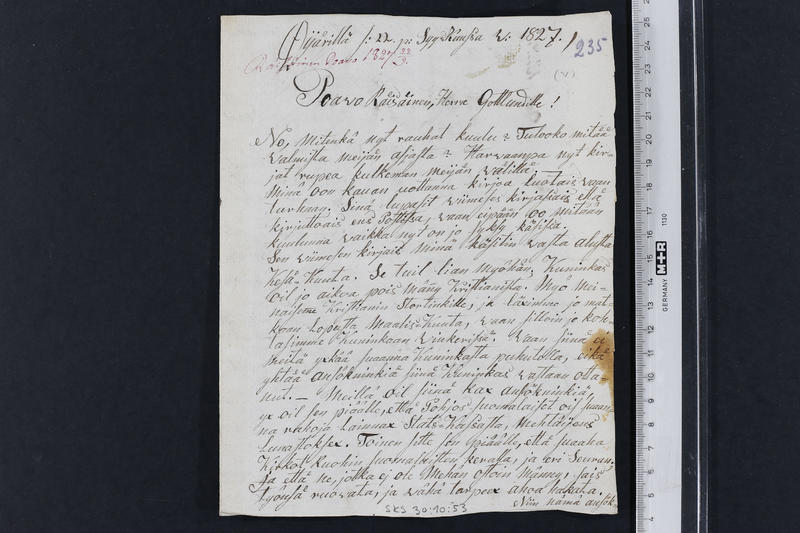 Öijärillä /: 22. p: Syys Kuussa w: 1827. /
235
Räisäinen Poavo 1827 22/9.
(V)
Poavo Räisäinen, Herra Gottlundille!
No, Mitenkä nyt rauhat kuulu? Tulooko mitää
valmista meijän asjasta? Harvaanpa nyt kir-
jat rupea kulkeman meijän välillä.
Minä oon kauan uottanna kirjoa luotais vaan
turhaan. Sinä lupasit viimeses kirjasais että
kirjuttoais ens Postissa, vaan epään oo mitään
kuulunna vaikka nyt on jo syksy käsissä.
Sen viimesen kirjais minä käsitin vasta alusta
Kesä-Kuuta. Se tuil lian myöhän, Kuninkas
oil jo aikoa pois mäny Kristianista. Myö mei-
naisimme Kristianin Stortinkille, ja läximmo jo mat-
koan lopusta Maalis-Kuuta, vaan silloin jo koh-
tasimme Kuninkoan Vinkerissä. Vaan siinä ei
meilä ykää soanna Kuninkasta puhutella, eikä
yhtää ansökninkiä siinä Kuninkas vastaan otta-
nut. — Meillä oil siinä kax ansökninkiä,
yx oil sen piäälle, että Pohjos Suomalaiset oil soan-
na rahoja lainnax Stats-Kassasta, Mehtäijens
lunastoksex. Toinen sitte sen piäälle, että soaha
Kirkot Ruohin Suomalaisten keralla, ja eri Seuran.
Ja että ne, jotka ej ole Mehän ostoin männy, sais
työnsä ruovata, ja vähä tarpeex ahoa hakata.
Niin nämä ansök-
SKS 30:10:53
GERMANY
M+R
1130
25
24
23
22
21
20
19
18
17
16
15
14
13
12
11
10
9
8
7
6
5
4